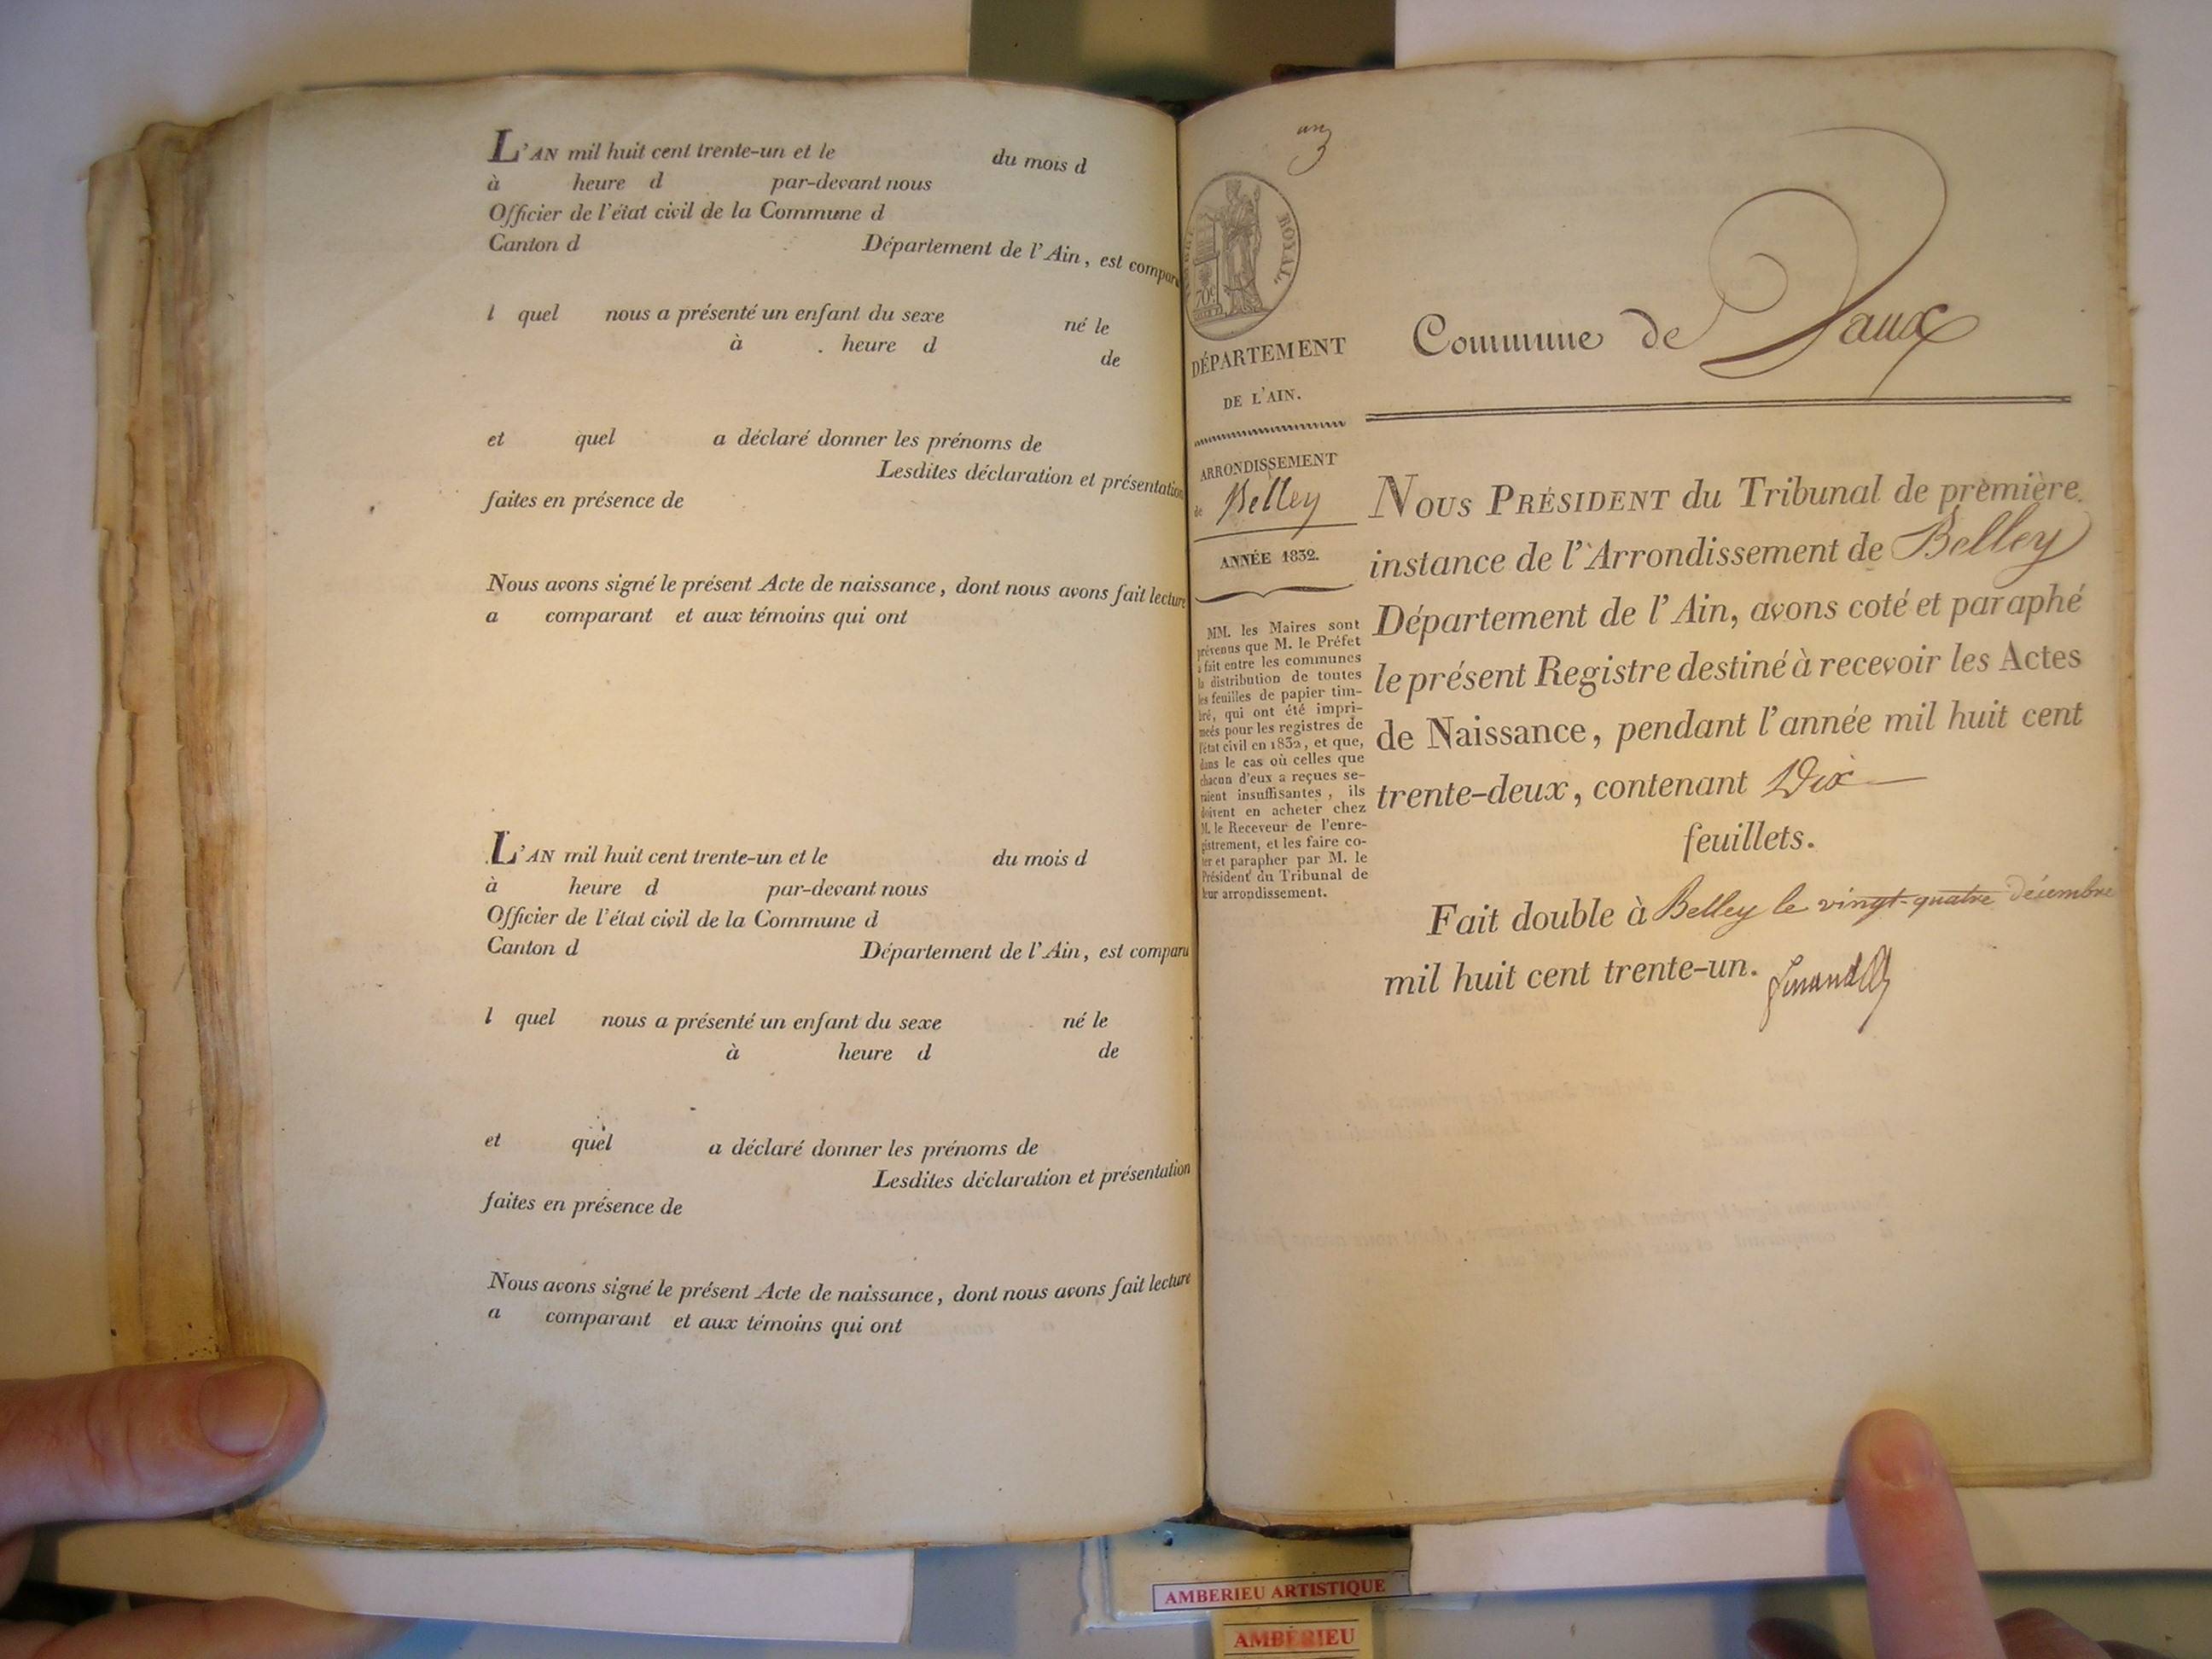 L'AN mil huit cent trente-un et le du mois d
à heure d par-devant nous
Officier de l'état civil de la Commune d
Canton d Département de l'Ain, est comparu
l quel nous a présenté un enfant du sexe né le
à heure d de
et quel a déclaré donner les prénoms de
Lesdites déclaration et présentation
faites en présence de
Nous avons signé le présent Acte de naissance, dont nous avons fait lecture
a comparant et aux témoins qui ont
L'AN mil huit cent trente-un et le du mois d
à heure d par-devant nous
Officier de l'état civil de la Commune d
Canton d Département de l'Ain, est comparu
l quel nous a présenté un enfant du sexe né le
à heure d de
et quel a déclaré donner les prénoms de
Lesdites déclaration et présentation
faites en présence de
Nous avons signé le présent Acte de naissance, dont nous avons fait lecture
a comparant et aux témoins qui ont
ROYAL.
70c
DÉPARTEMENT
DE L'AIN.
ARRONDISSEMENT
de Belley
ANNÉE 1832.
MM. les Maires sont
prévenus que M. le Préfet
a fait entre les communes
la distribution de toutes
les feuilles de papier tim-
bré, qui ont été impri-
mées pour les registres de
l'état civil en 1832, et que,
dans le cas où celles que
chacun d'eux a reçues se-
raient insuffisantes, ils
doivent en acheter chez
M. le Receveur de l'enre-
gistrement, et les faire co-
ter et parapher par M. le
Président du Tribunal de
leur arrondissement.
Commune de Vaux
NOUS PRÉSIDENT du Tribunal de première
instance de l'Arrondissement de Belley
Département de l'Ain, avons coté et paraphé
le présent Registre destiné à recevoir les Actes
de Naissance, pendant l'année mil huit cent
trente-deux, contenant Dix
feuillets.
Fait double à Belley le vingt-quatre décembre
mil huit cent trente-un.
AMBERIEU ARTISTIQUE
AMBERIEU